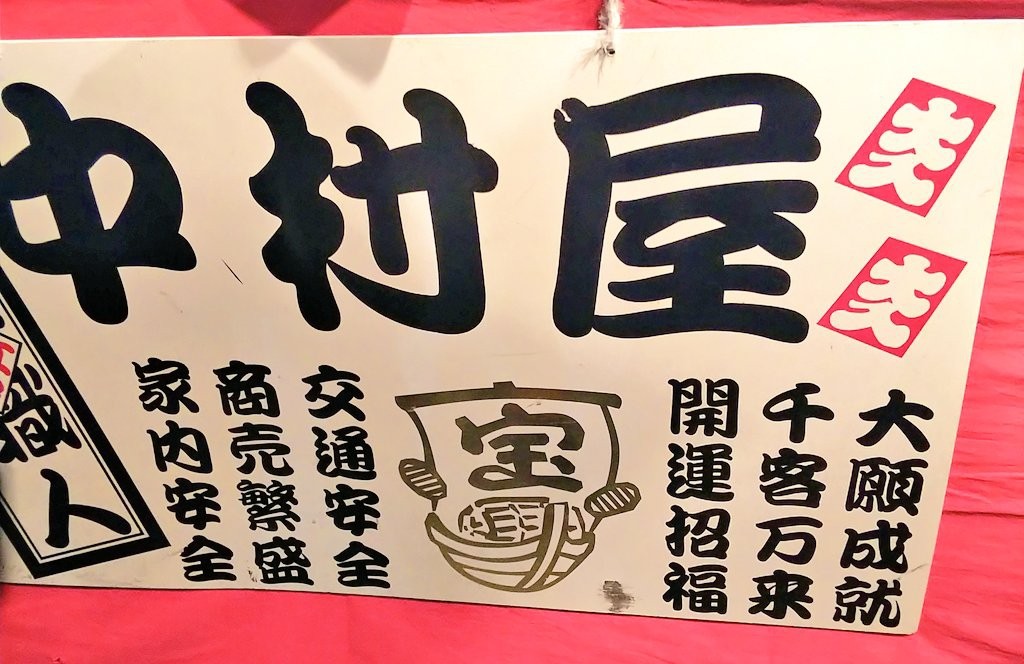 中村屋
大入
大入
大願成就
千客万来
開運招福
宝
交通安全
商売繁盛
家内安全
職人